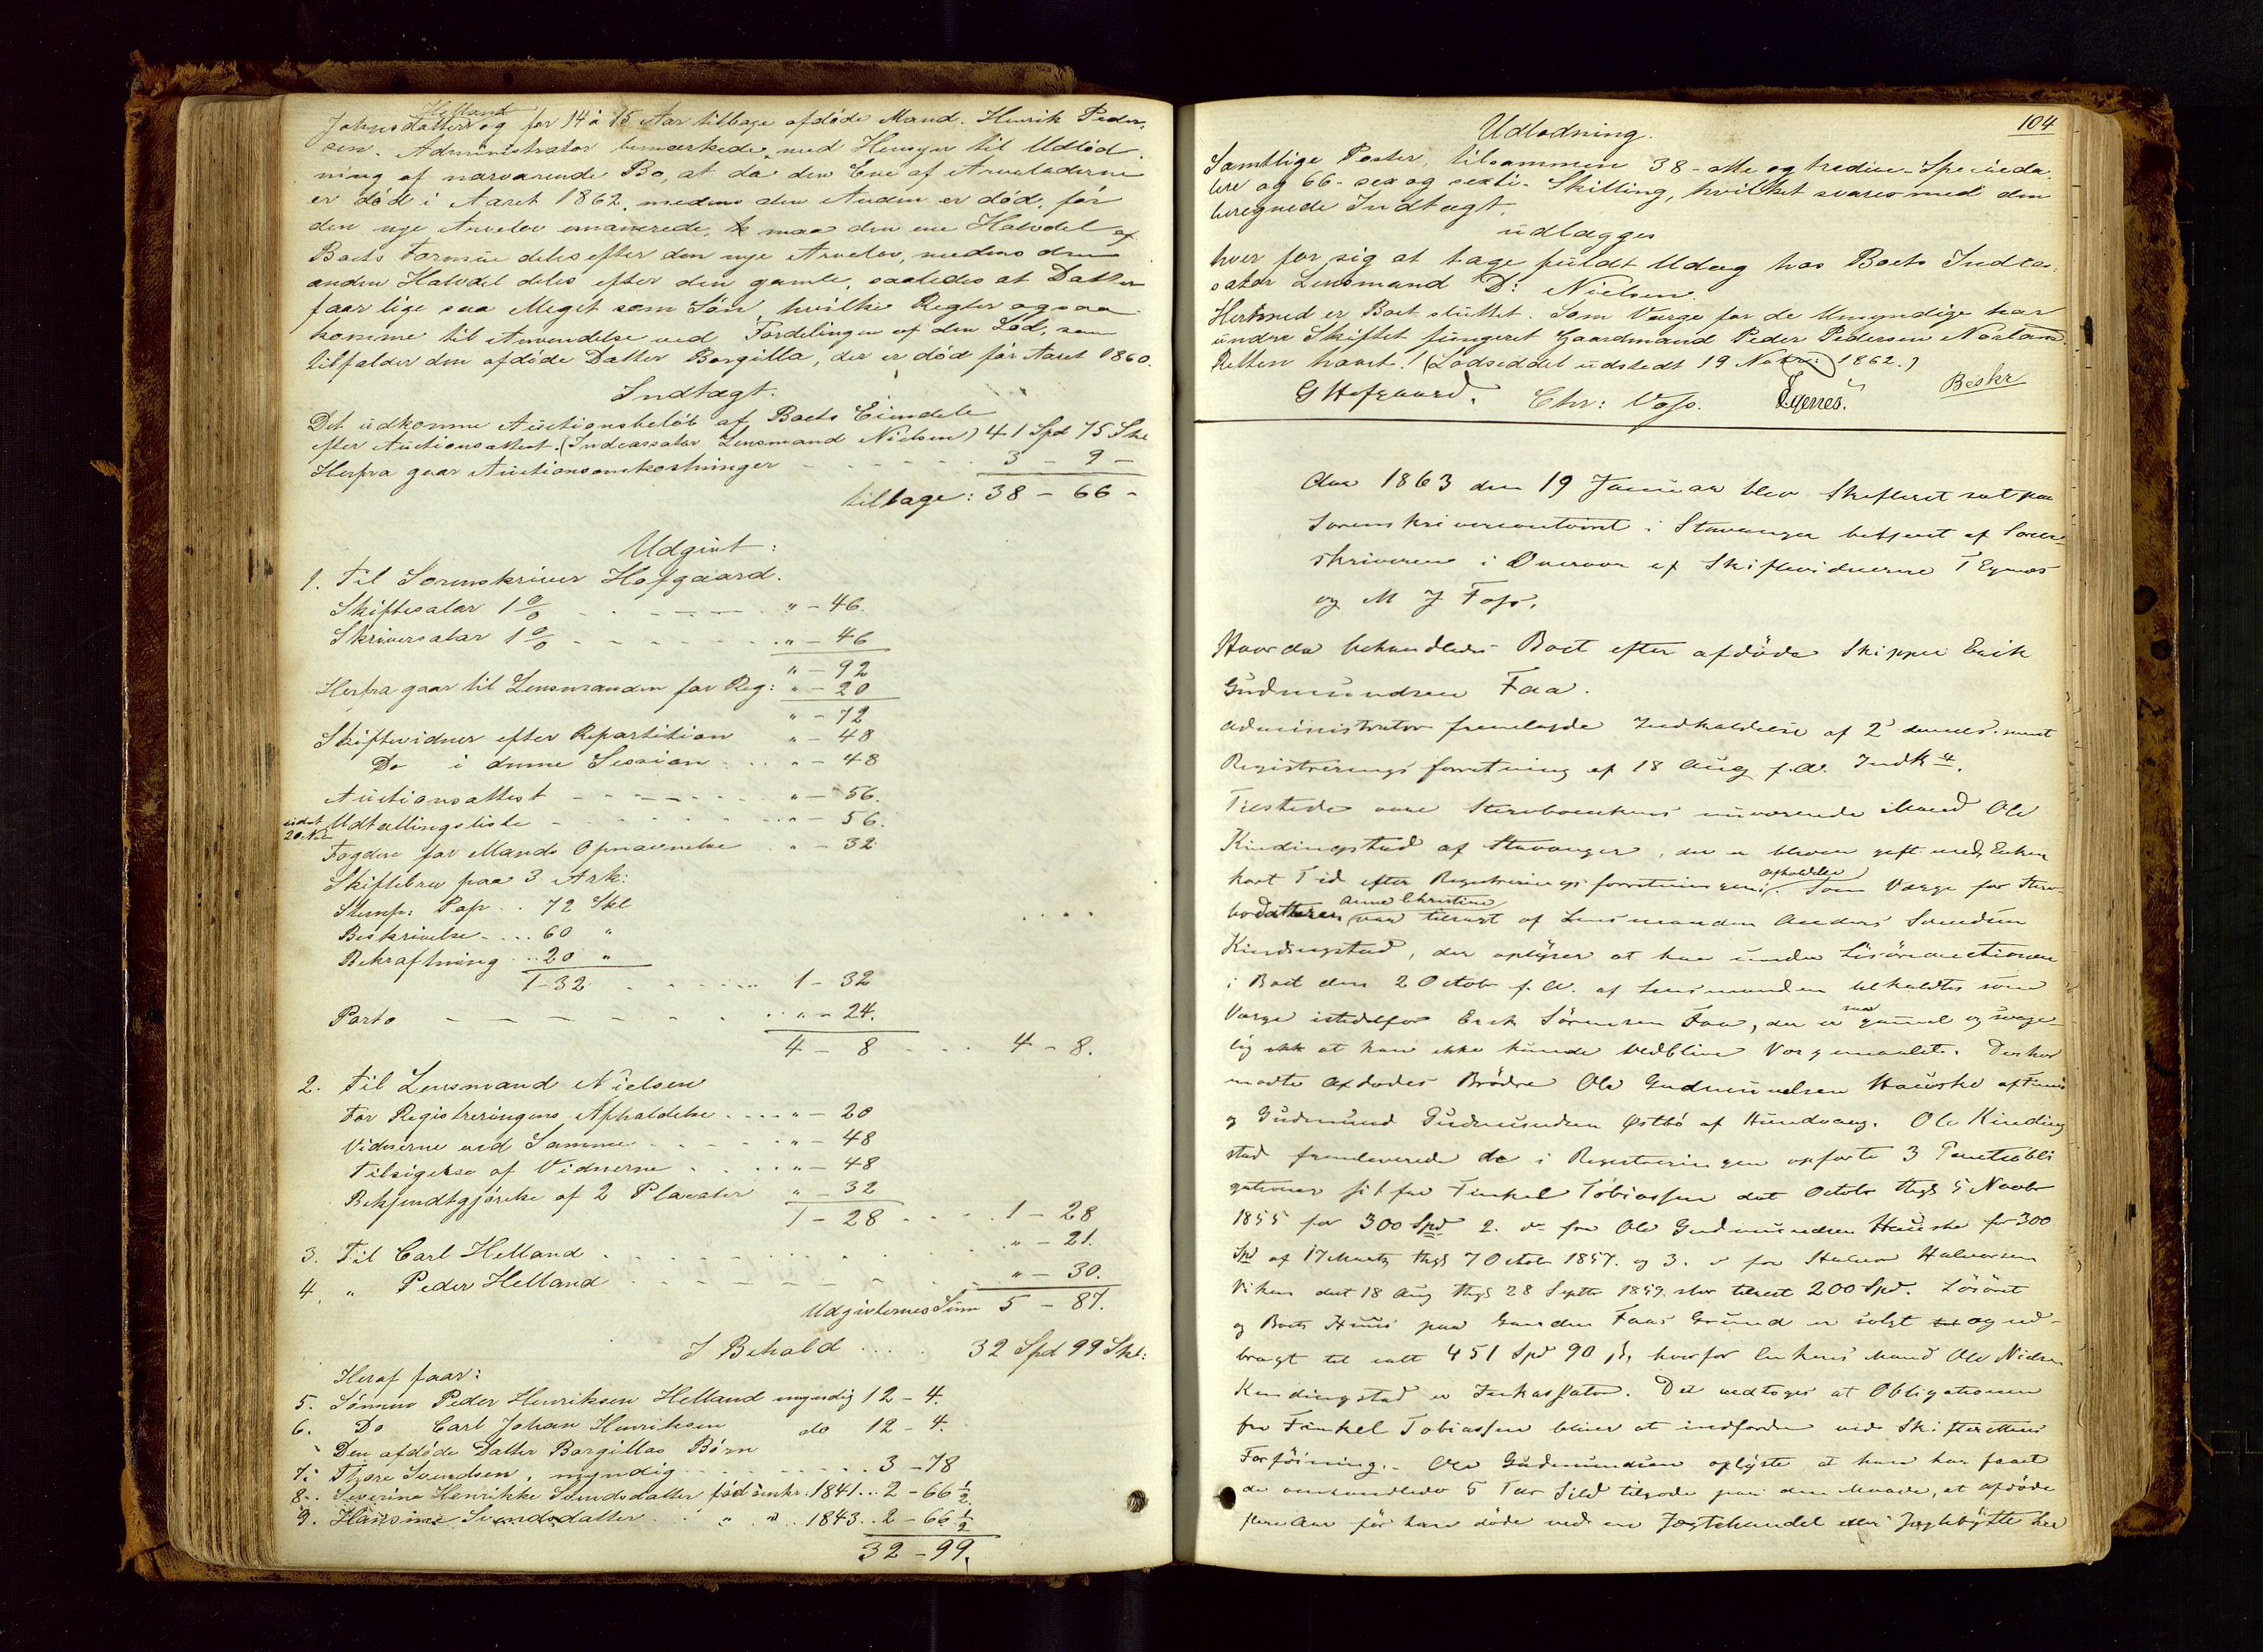 Helland
Johnsdatter og for 14 à 15 Aar tilbage afdøde Mand. Henrik Peder-
sen. Administrator bemærkede, med Hensyn til Udlod-
ning af nærværende Bo, at da den Ene af Arveladerne
er død i Aaret 1862, medens den Anden er død, før
den nye Arvelov emanerede, maa den ene Halvdel af
Boets Formue deles efter den nye Arvelov, medens den
anden Halvdel deles efter den gamle, saaledes at Datter
faar lige saa Meget som Søn, hvilke Regler ogsaa
komme til Anvendelse ved Fordelingen af den Lod, som
tilfalder den afdøde Datter Borgilla, der er død før Aaret 1860.
Indtægt.
Det udkomne Auctionsbeløb af Boets Eiendele
efter Auctionsattest. (Indcassator Lensmand Nielsen) 41 Spd 75 Skl
Herfra gaar Auctionsomkostninger 3 - 9 -
tilbage: 38 - 66 -
Udgivt:
1. Til Sorenskriver Hofgaard.
Skiftesalær 1 % " - 46.
Skriversalær 1 % " - 46
" - 92
Herfra gaar til Lensmanden for Reg: " - 20
" - 72
Skiftevidner efter Repartition " - 48
Do i denne Session " - 48
Auctionsattest " - 56.
udst Udtællingsliste " - 56.
20 Nov
Fogden for Mands Opnævnelse " - 32
Skiftebrev paa 3 Ark:
Stemp: Pap .. 72 Skl
Beskrivelse .... 60 "
Bekræftning .. 20 "
1-32 1 - 32
Porto " - 24.
4 - 8 4 - 8.
2. Til Lensmand Nielsen
For Registreringens Afholdelse .... " - 20
Vidnerne ved Samme " - 48
Tilsigelse af Vidnerne " - 48
Bekjendtgjørelse af 2 Placater " - 32
1 - 28 1 - 28
3. Til Carl Helland " - 21.
4. " Peder Helland " - 30.
Udgivternes Sum 5 - 87.
I Behold .... 32 Spd 99 Skl:
Heraf faar:
5. Sønnen Peder Henriksen Helland myndig 12 - 4.
6. Do Carl Johan Henriksen do 12 - 4.
Den afdøde Datter Borgillas Børn
7. Thore Svendsen, myndig 3 - 78
8. Severine Henrikke Svendsdatter født 1841 .. 2 - 66 1/2
9. Hansine Svendsdatter " " 1843 .. 2 - 66 1/2
32 - 99.
104
Udlodning.
Samtlige Poster, tilsammen 38 - otte og tredive - Specieda-
lere og 66 - sex og sexti - Skilling, hvilket svares med den
beregnede Indtægt,
udlægges
hver for sig at tage fuldt Udlæg hos Boets Indcas-
sator Lensmand D: Nielsen.
Hermed er Boet sluttet. Som Værge for de Umyndige har
under Skiftet fungeret Gaardmand Peder Pedersen
Retten hævet. (Lodseddel udstedt 19 1862.)
G Hofgaard. Chr: Voss. Egenes. Beskr
Aar 1863 den 19 Januar blev Skifteret sat paa
Sorenskrivercontoiret i Stavanger betjent af Soren-
skriveren i Overvær af Skiftevidnerne T Egenes
og M J Foss.
Hvorda behandledes Boet efter afdøde Skipper Erik
Gudmundsen Faa.
Administrator fremlagde Indkaldelse af 2 dennes samt
Registreringsforretning af 18 Aug f. A.
Tilstede vare Stervboenkens nuværende Mand Ole
Kindingstad af Stavanger, der er bleven gift med Enken
kort Tid efter Registreringsforretningens
afholdelse
Som Værge for Sterv-
Anne Christine
bodatteren var tilsagt af Lensmanden Anders Svendsen
Kindingstad, der oplyser at han under Løsøreauctionen
i Boet den 2 October f. A. af Lensmanden tilkaldtes som
Værge istedetfor Erik Sørensen Faa, der er saa gammel og svage-
lig at han ikke kunde vedblive Værgemaalet. Derhos
mødte Afdødes Brødre Ole Gudmundsen Hauske af
og Gudmund Gudmundsen Østbø af Hundvaag. Ole Kinding
stad fremleverede de i Registreringen opførte 3 Pantobli
gationer fra Tobiassen dat October thgl 5 Novbr
1855 for 300 Spd 2. do fra Ole Gudmundsen Hauske for 300
Spd af 17 Marts thgl 7 Octobr 1857. og 3. do fra Halvor Halvorsen
Viken dat 18 Aug thgl 28 Septbr 1859. 200 Spd. Løsøret
og Boets Huus paa Gaarden Faas Grund er solgt og ud-
bragt til ialt 451 Spd 90 ß, hvorfor Enkens Mand Ole Nielsen
Kindingstad er Inkassator. Det vedtoges at Obligationen
fra Tobiassen bliver at indfordre ved Skifterettens
Forføining. - Ole Gudmundsen oplyste at han har faaet
de omhandlede 5 Sild tilgode paa den Maade, at afdøde
flere Aar før han døde ved en Jagtehandel eller Jagtebytte